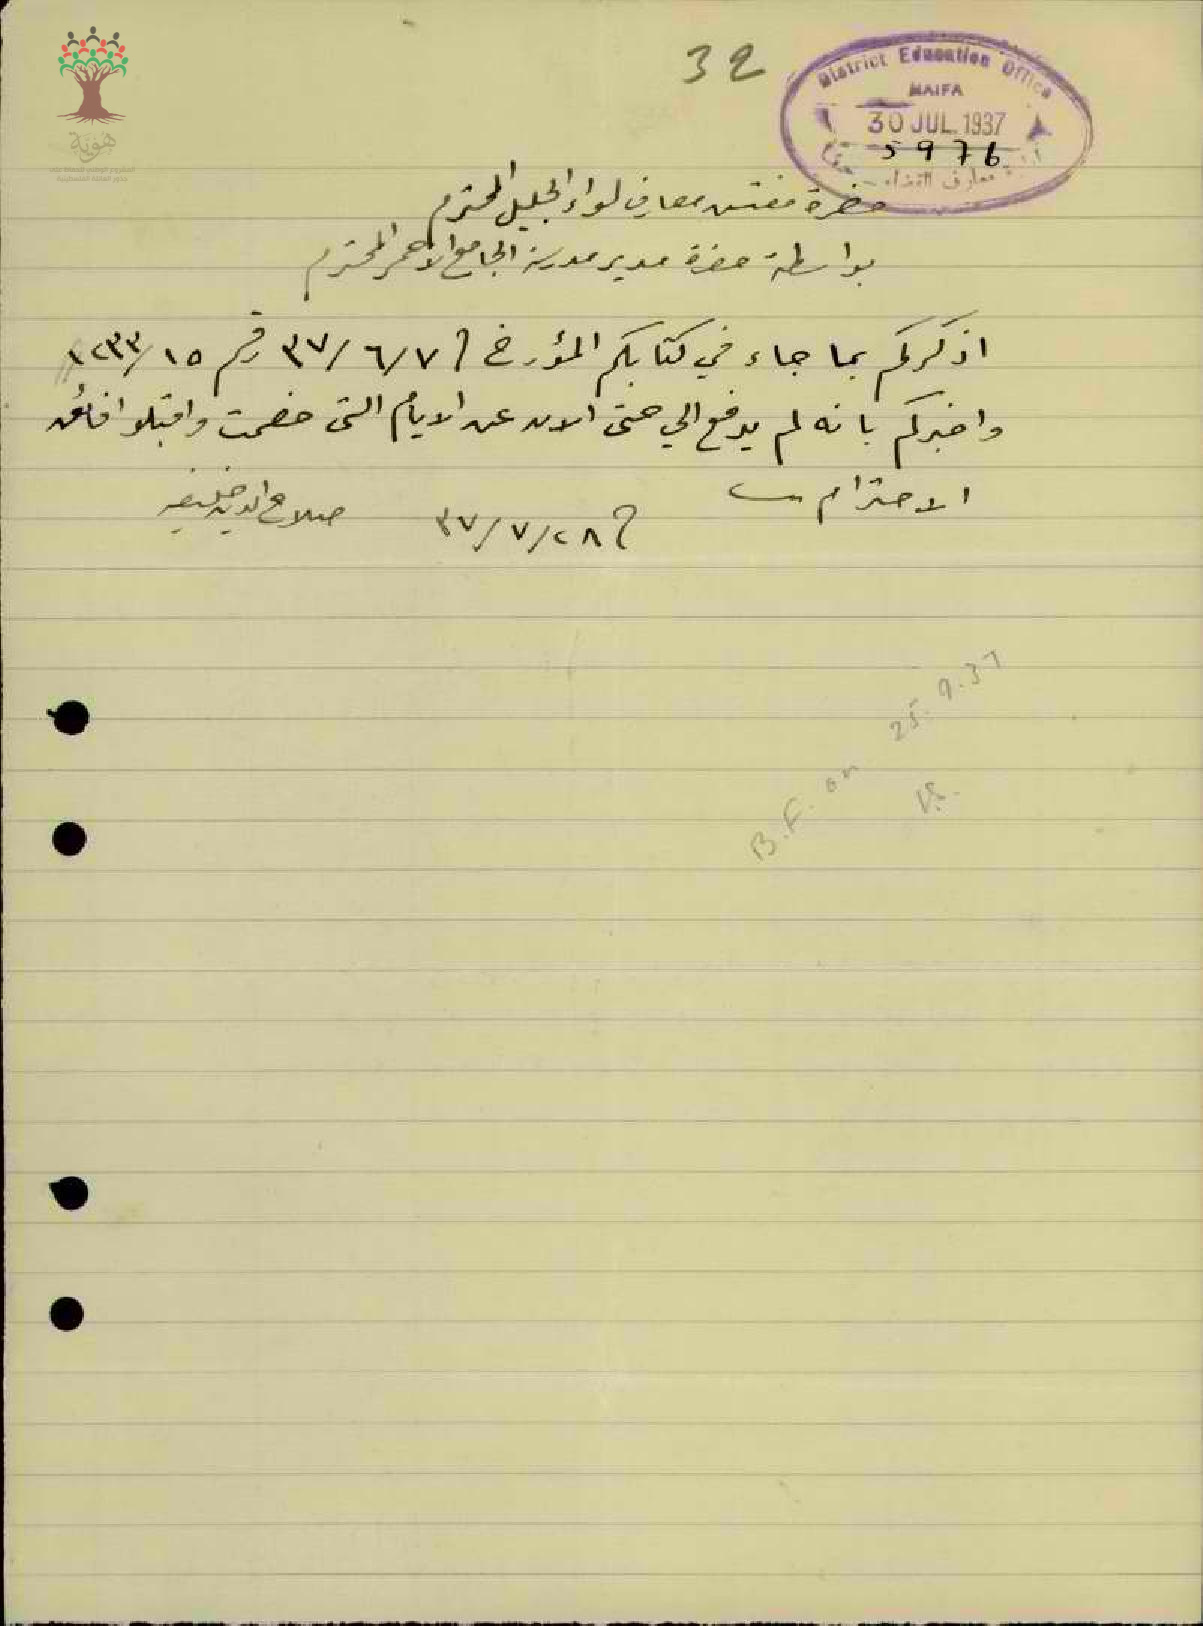 32
District Education Office
HAIFA
30 JUL 1937
5976
معارف القضاء
هوية
حضرة مفتش معارف لواء الجليل المحترم
بواسطة حضرة مدير مدرسة الجامع الاحمر المحترم
اذكركم بما جاء في كتابكم المؤرخ في ٣٧/٦/٧ رقم ١٢٣٣/١٥
واخبركم بانه لم يدفع الي حتى الان عن الايام التي خصمت واقبلوا فائق
الاحترام
٣٧/٧/٢٨
صلاح الدين خليفه
B.F. on 25.9.37